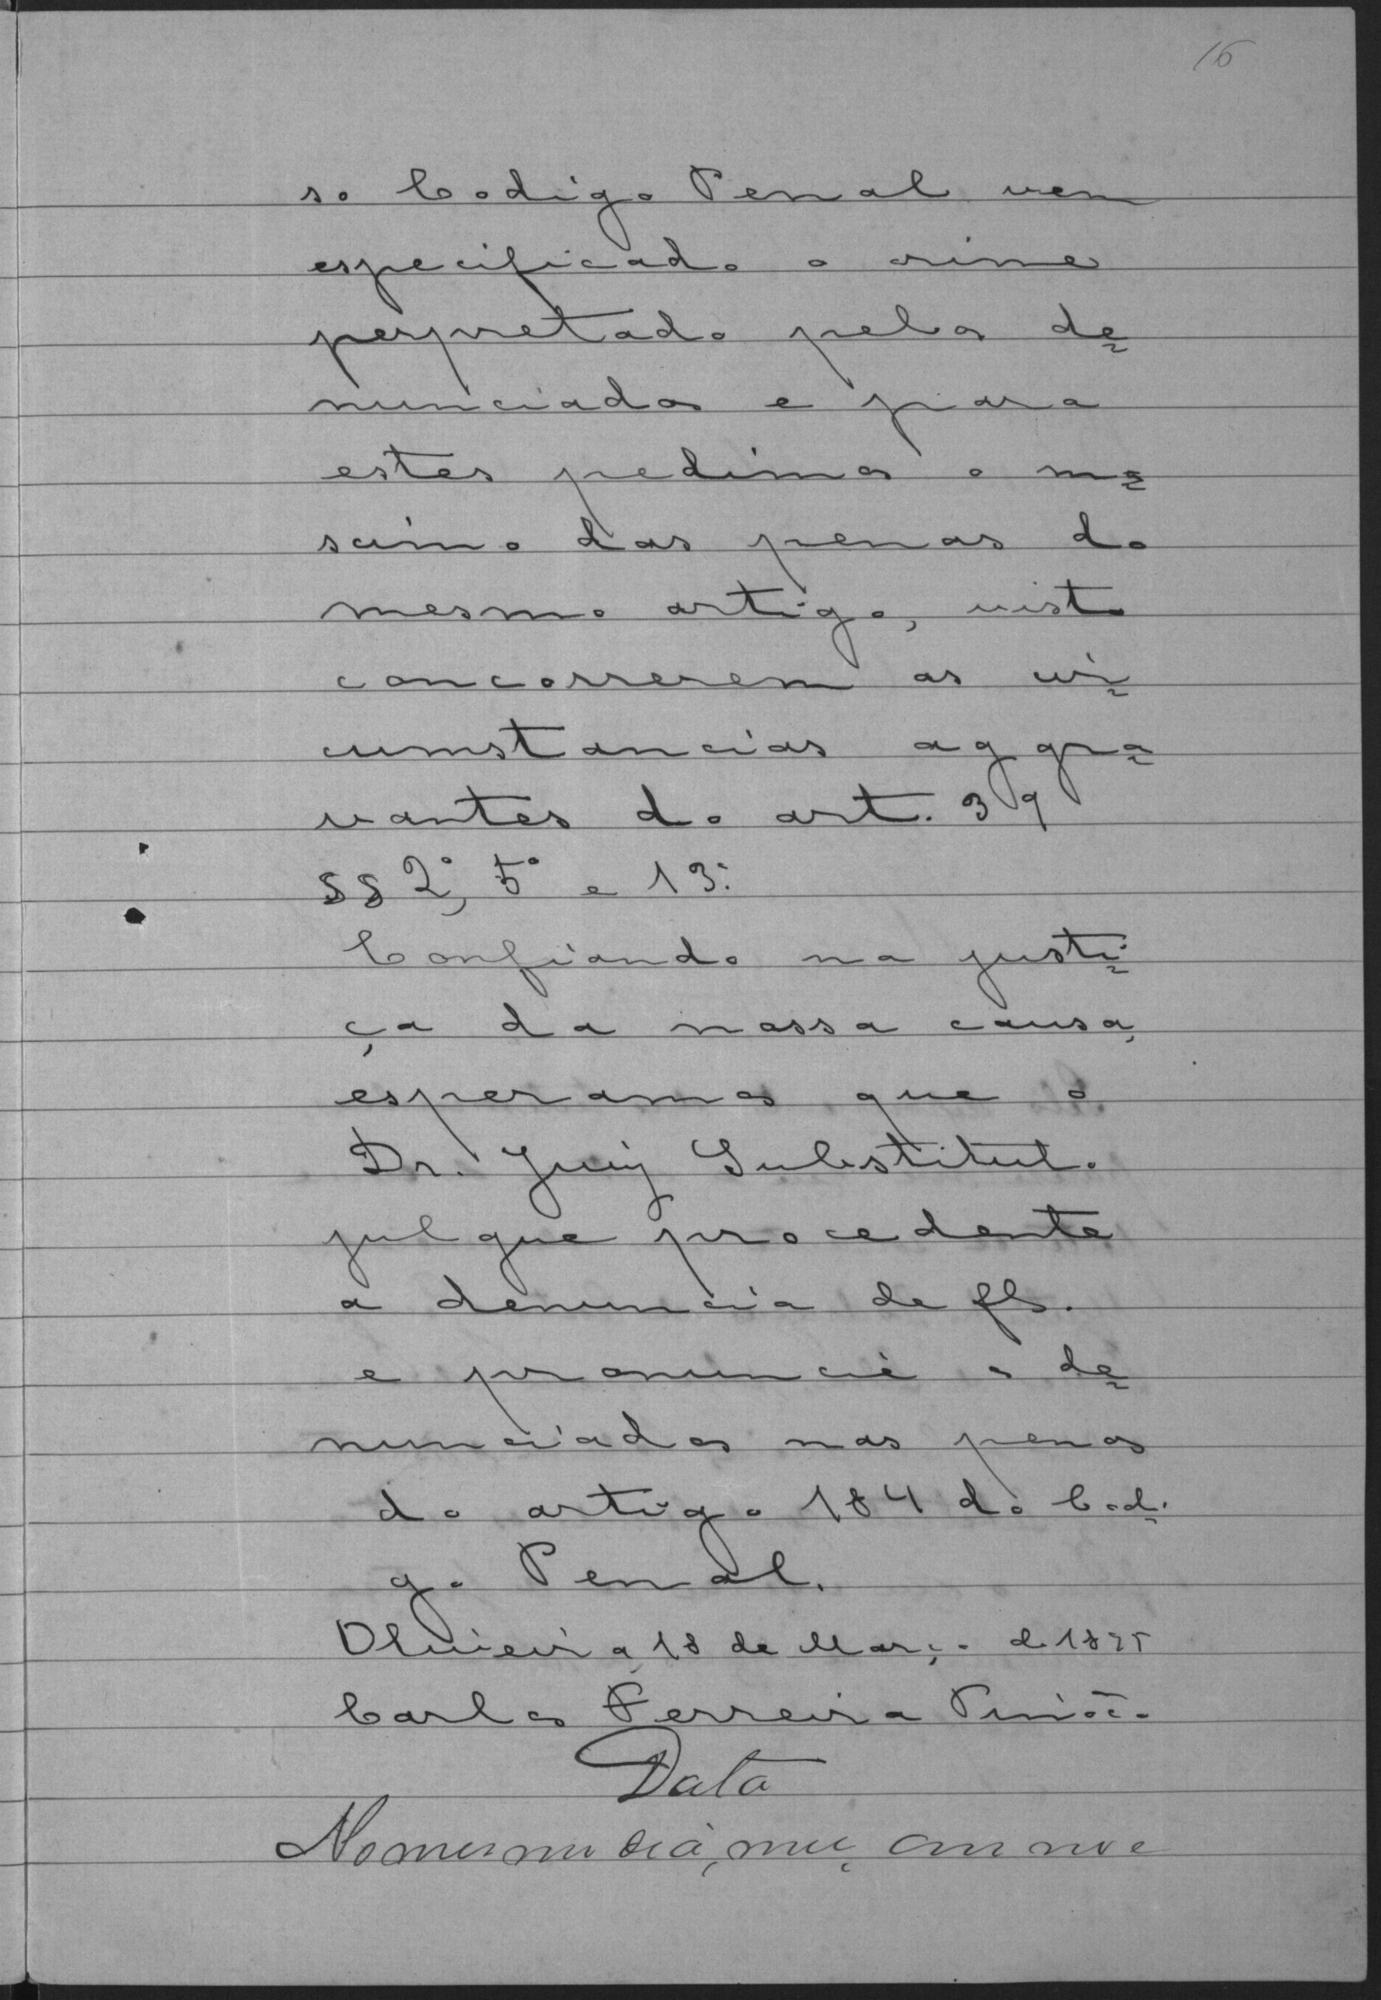 16
so Codigo Penal vem
especificado o crime
perpretado pelos de=
nunciados e para
estes pedimos o ma=
ximo das penas do
mesmo artigo, visto
concorrerem as cir=
cumstancias aggra=
vantes do art. 39
§§ 2º, 5º e 13º.
Confiando na justi=
ça da nossa causa,
esperamos que o
Dr. Juiz Substituto
julgue procedente
a denuncia de fls.
e pronuncie os de=
nunciados nas penas
do artigo 184 do Codi=
go Penal.
Oliveira, 18 de Março de 1895
Carlos Ferreira
Data
No mesmo dia, mez, anno e